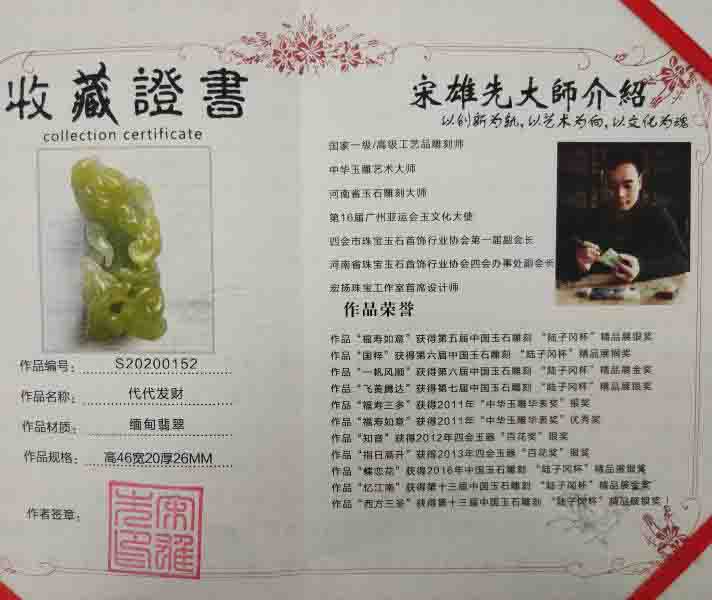 收藏證書
collection certificate
作品编号: S20200152
作品名称: 代代发财
作品材质: 缅甸翡翠
作品规格: 高46宽20厚26MM
作者签章:
宋雄先印
宋雄先大師介紹
以创新为轨,以艺术为向,以文化为魂
国家一级/高级工艺品雕刻师
中华玉雕艺术大师
河南省玉石雕刻大师
第16届广州亚运会玉文化大使
四会市珠宝玉石首饰行业协会第一届副会长
河南省珠宝玉石首饰行业协会四会办事处副会长
宏扬珠宝工作室首席设计师
作品荣誉
作品“福寿如意”获得第五届中国玉石雕刻 “陆子冈杯”精品展银奖
作品“国粹”获得第六届中国玉石雕刻 “陆子冈杯”精品展铜奖
作品“一帆风顺”获得第六届中国玉石雕刻 “陆子冈杯”精品展金奖
作品“飞黄腾达”获得第七届中国玉石雕刻 “陆子冈杯”精品展银奖
作品“福寿三多”获得2011年“中华玉雕华表奖”银奖
作品“福寿如意”获得2011年“中华玉雕华表奖”优秀奖
作品“知音”获得2012年四会玉器“百花奖”银奖
作品“指日高升”获得2013年四会玉器“百花奖”银奖
作品“蝶恋花”获得2016年中国玉石雕刻 “陆子冈杯”精品展银奖
作品“忆江南”获得第十三届中国玉石雕刻 “陆子冈杯”精品展金奖
作品“西方三圣”获得第十三届中国玉石雕刻 “陆子冈杯”精品展银奖